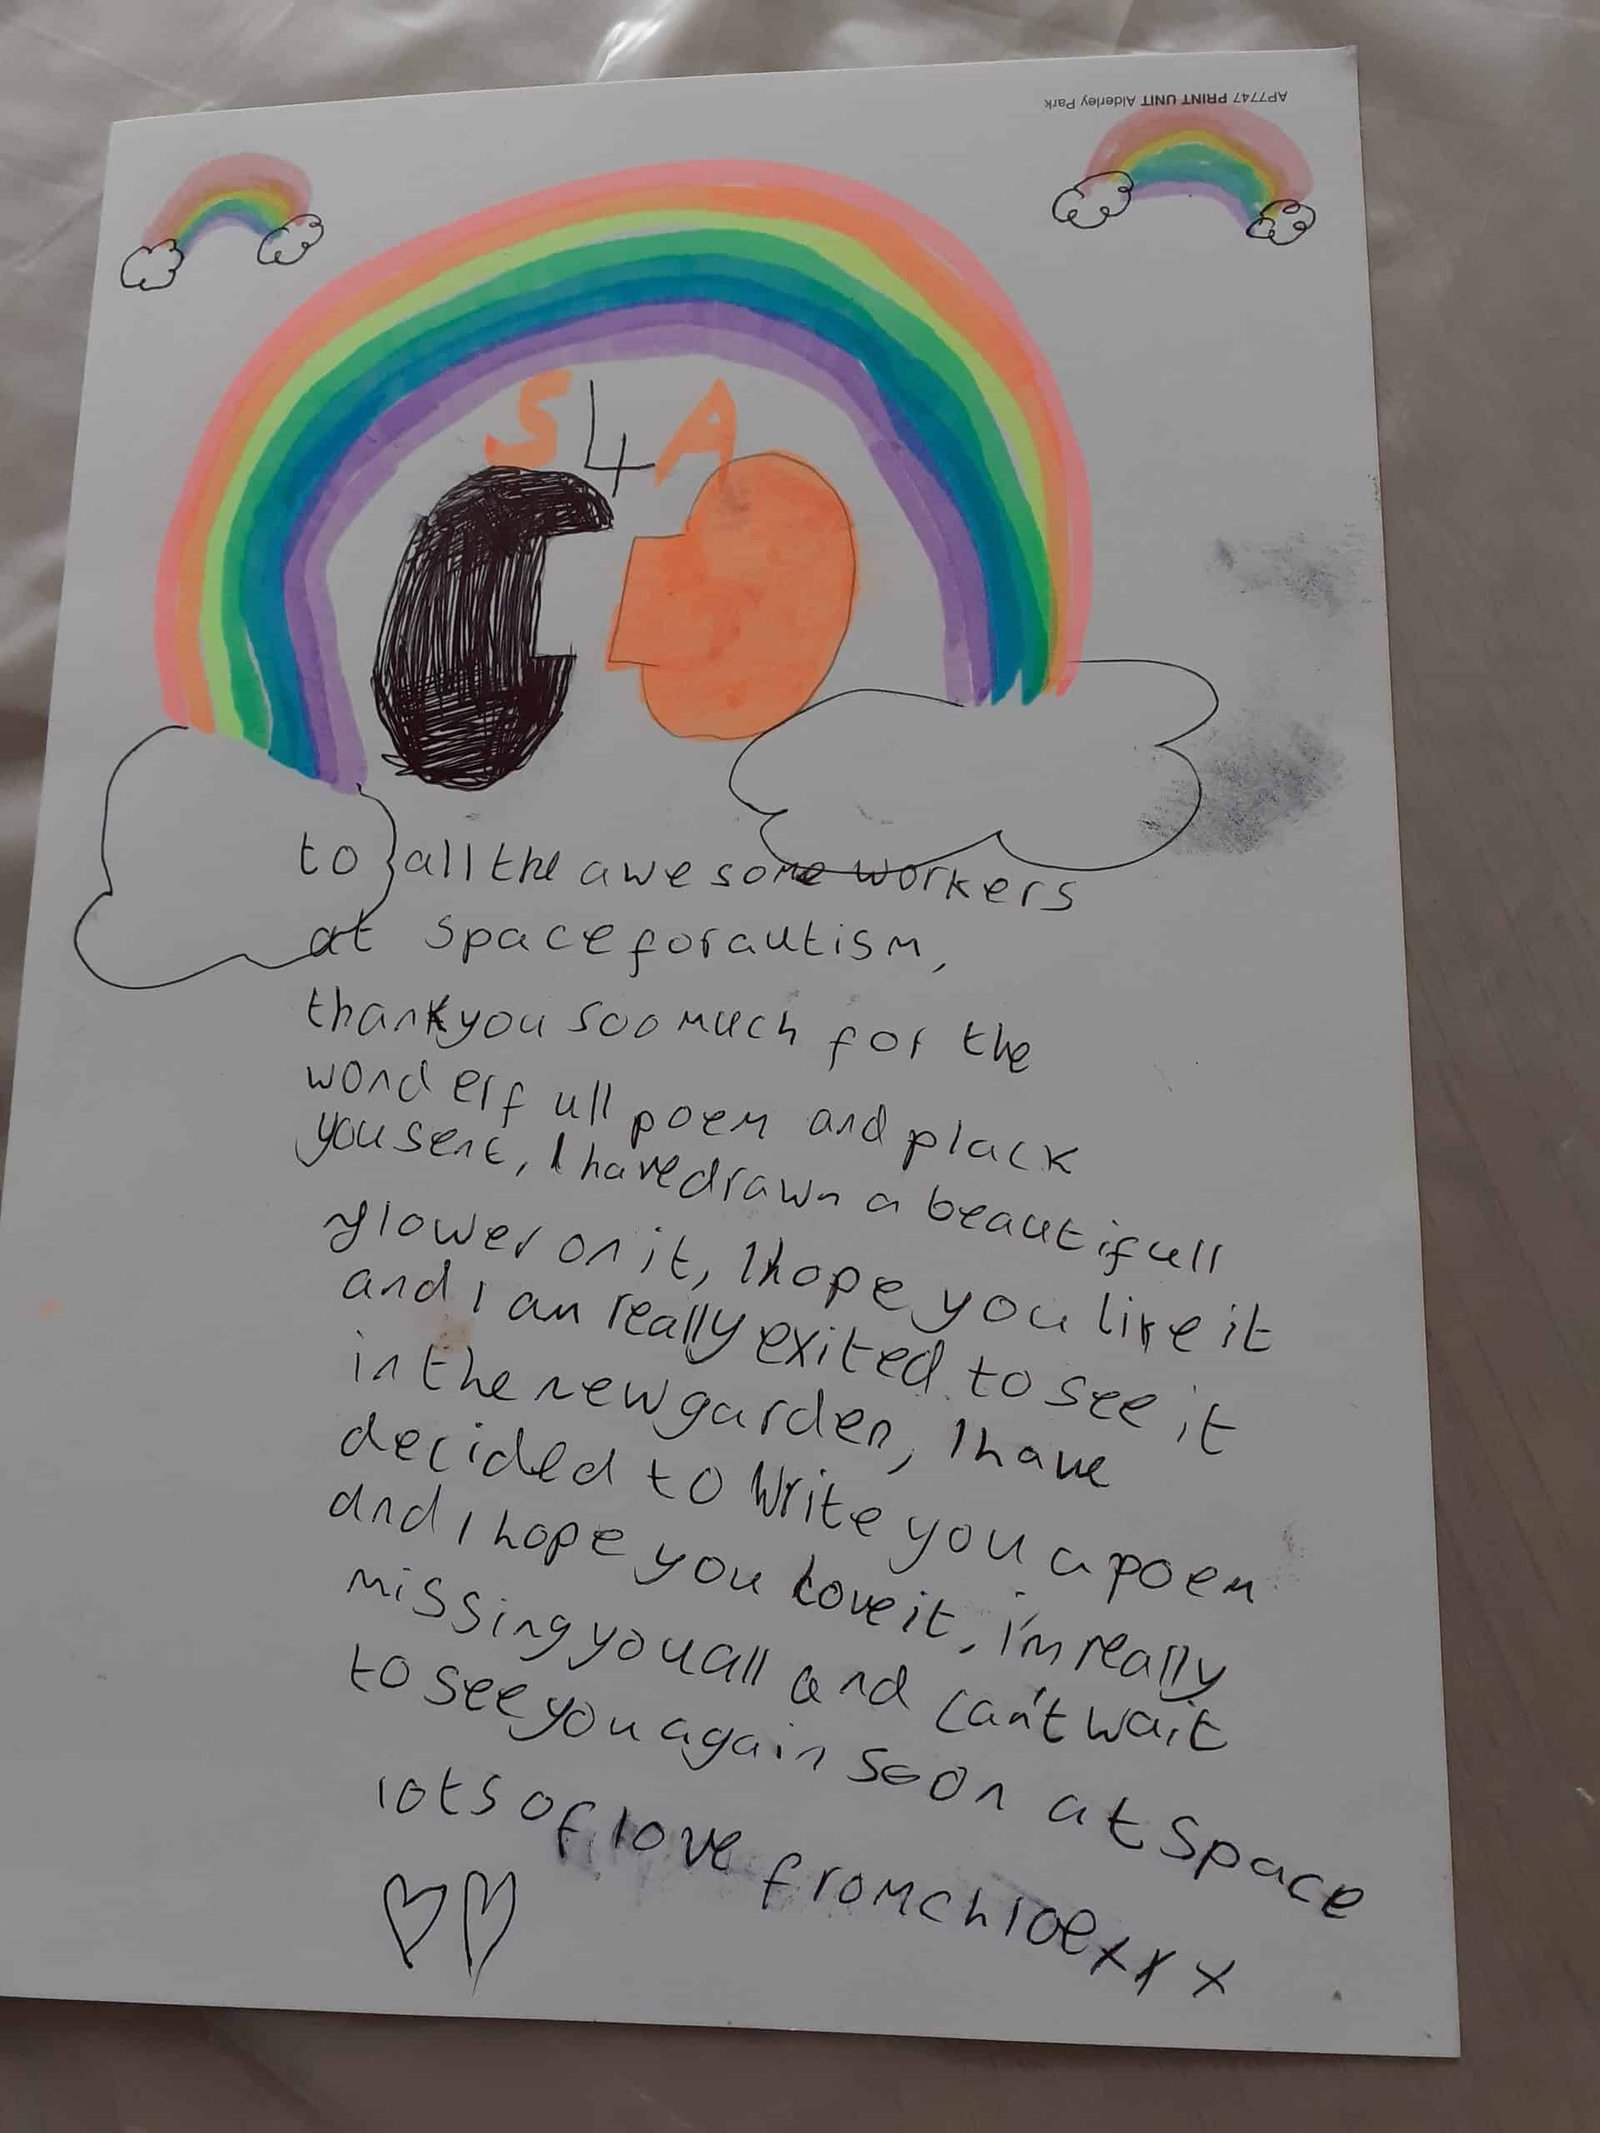 AP7747 PRINT UNIT Alderley Park
S4A
to all the awesome workers
at space for autism,
thankyou soo much for the
wonderfull poem and plack
you sent, I have drawn a beautifull
flower on it, I hope you like it
and I am really exited to see it
in the new garden, I have
decided to write you a poem
and I hope you love it, i'm really
missing you all and can't wait
to see you again soon at space
lots of love from chloe xxx